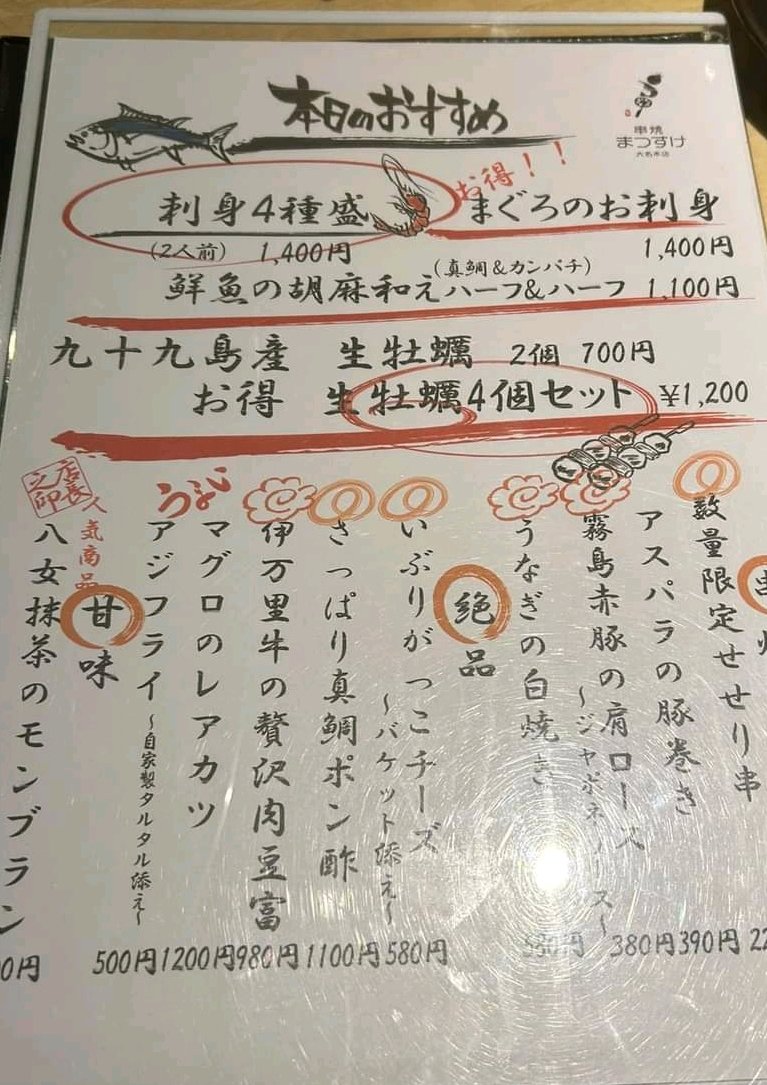 本日のおすすめ
串焼
まつすけ
大名本店
お得!!
刺身4種盛
(2人前) 1,400円
まぐろのお刺身
1,400円
(真鯛&カンパチ)
鮮魚の胡麻和えハーフ&ハーフ 1,100円
九十九島産 生牡蠣 2個 700円
お得 生牡蠣4個セット ¥1,200
数量限定せせり串
アスパラの豚巻き
390円
霧島赤豚の肩ロース
380円
うなぎの白焼き
絶品
いぶりがっこチーズ
〜バケット添え〜
580円
さっぱり真鯛ポン酢
1100円
伊万里牛の贅沢肉豆富
980円
うましっ
マグロのレアカツ
1200円
アジフライ〜自家製タルタル添え〜
500円
甘味
人気商品
店長之印
八女抹茶のモンブラン